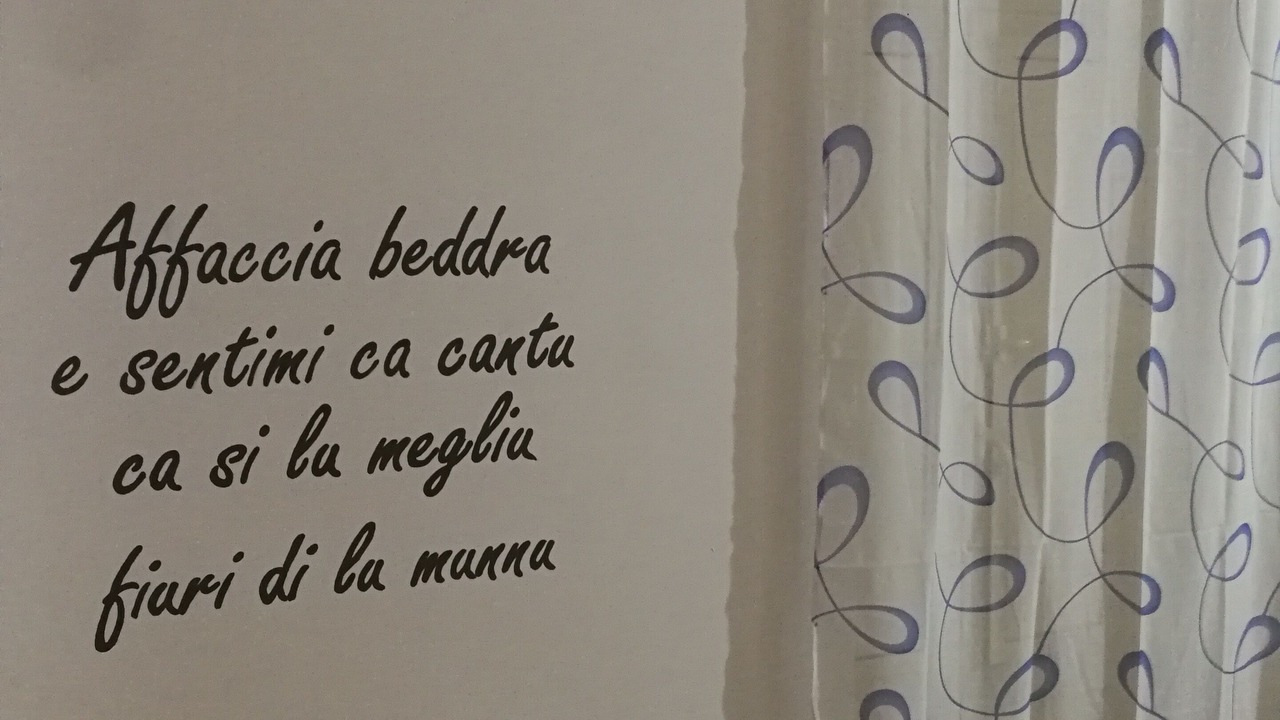 Affaccia beddra
e sentimi ca cantu
ca si lu megliu
fiuri di lu munnu